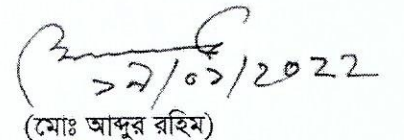 ২৭/০১/2022
(মোঃ আব্দুর রহিম)